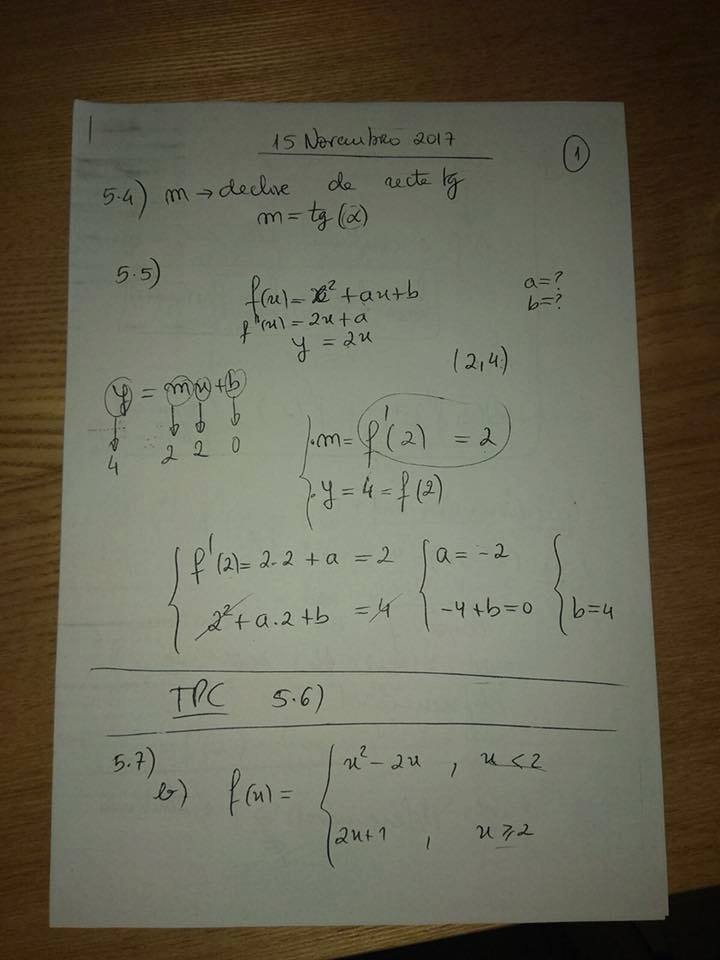 15 Novembro 2017
1
5.4) m → declive de recta tg
m = tg(α)
5.5)
f(x) = x² + ax + b
a = ?
b = ?
f'(x) = 2x + a
y = 2x
(2,4)
y = mx + b
4 2 2 0
m = f'(2) = 2
y = 4 = f(2)
f'(2) = 2·2 + a = 2 a = -2
2² + a·2 + b = 4 -4 + b = 0 b = 4
TPC 5.6)
5.7)
b) f(x) =
x² - 2x , x < 2
2x + 1 , x ≥ 2